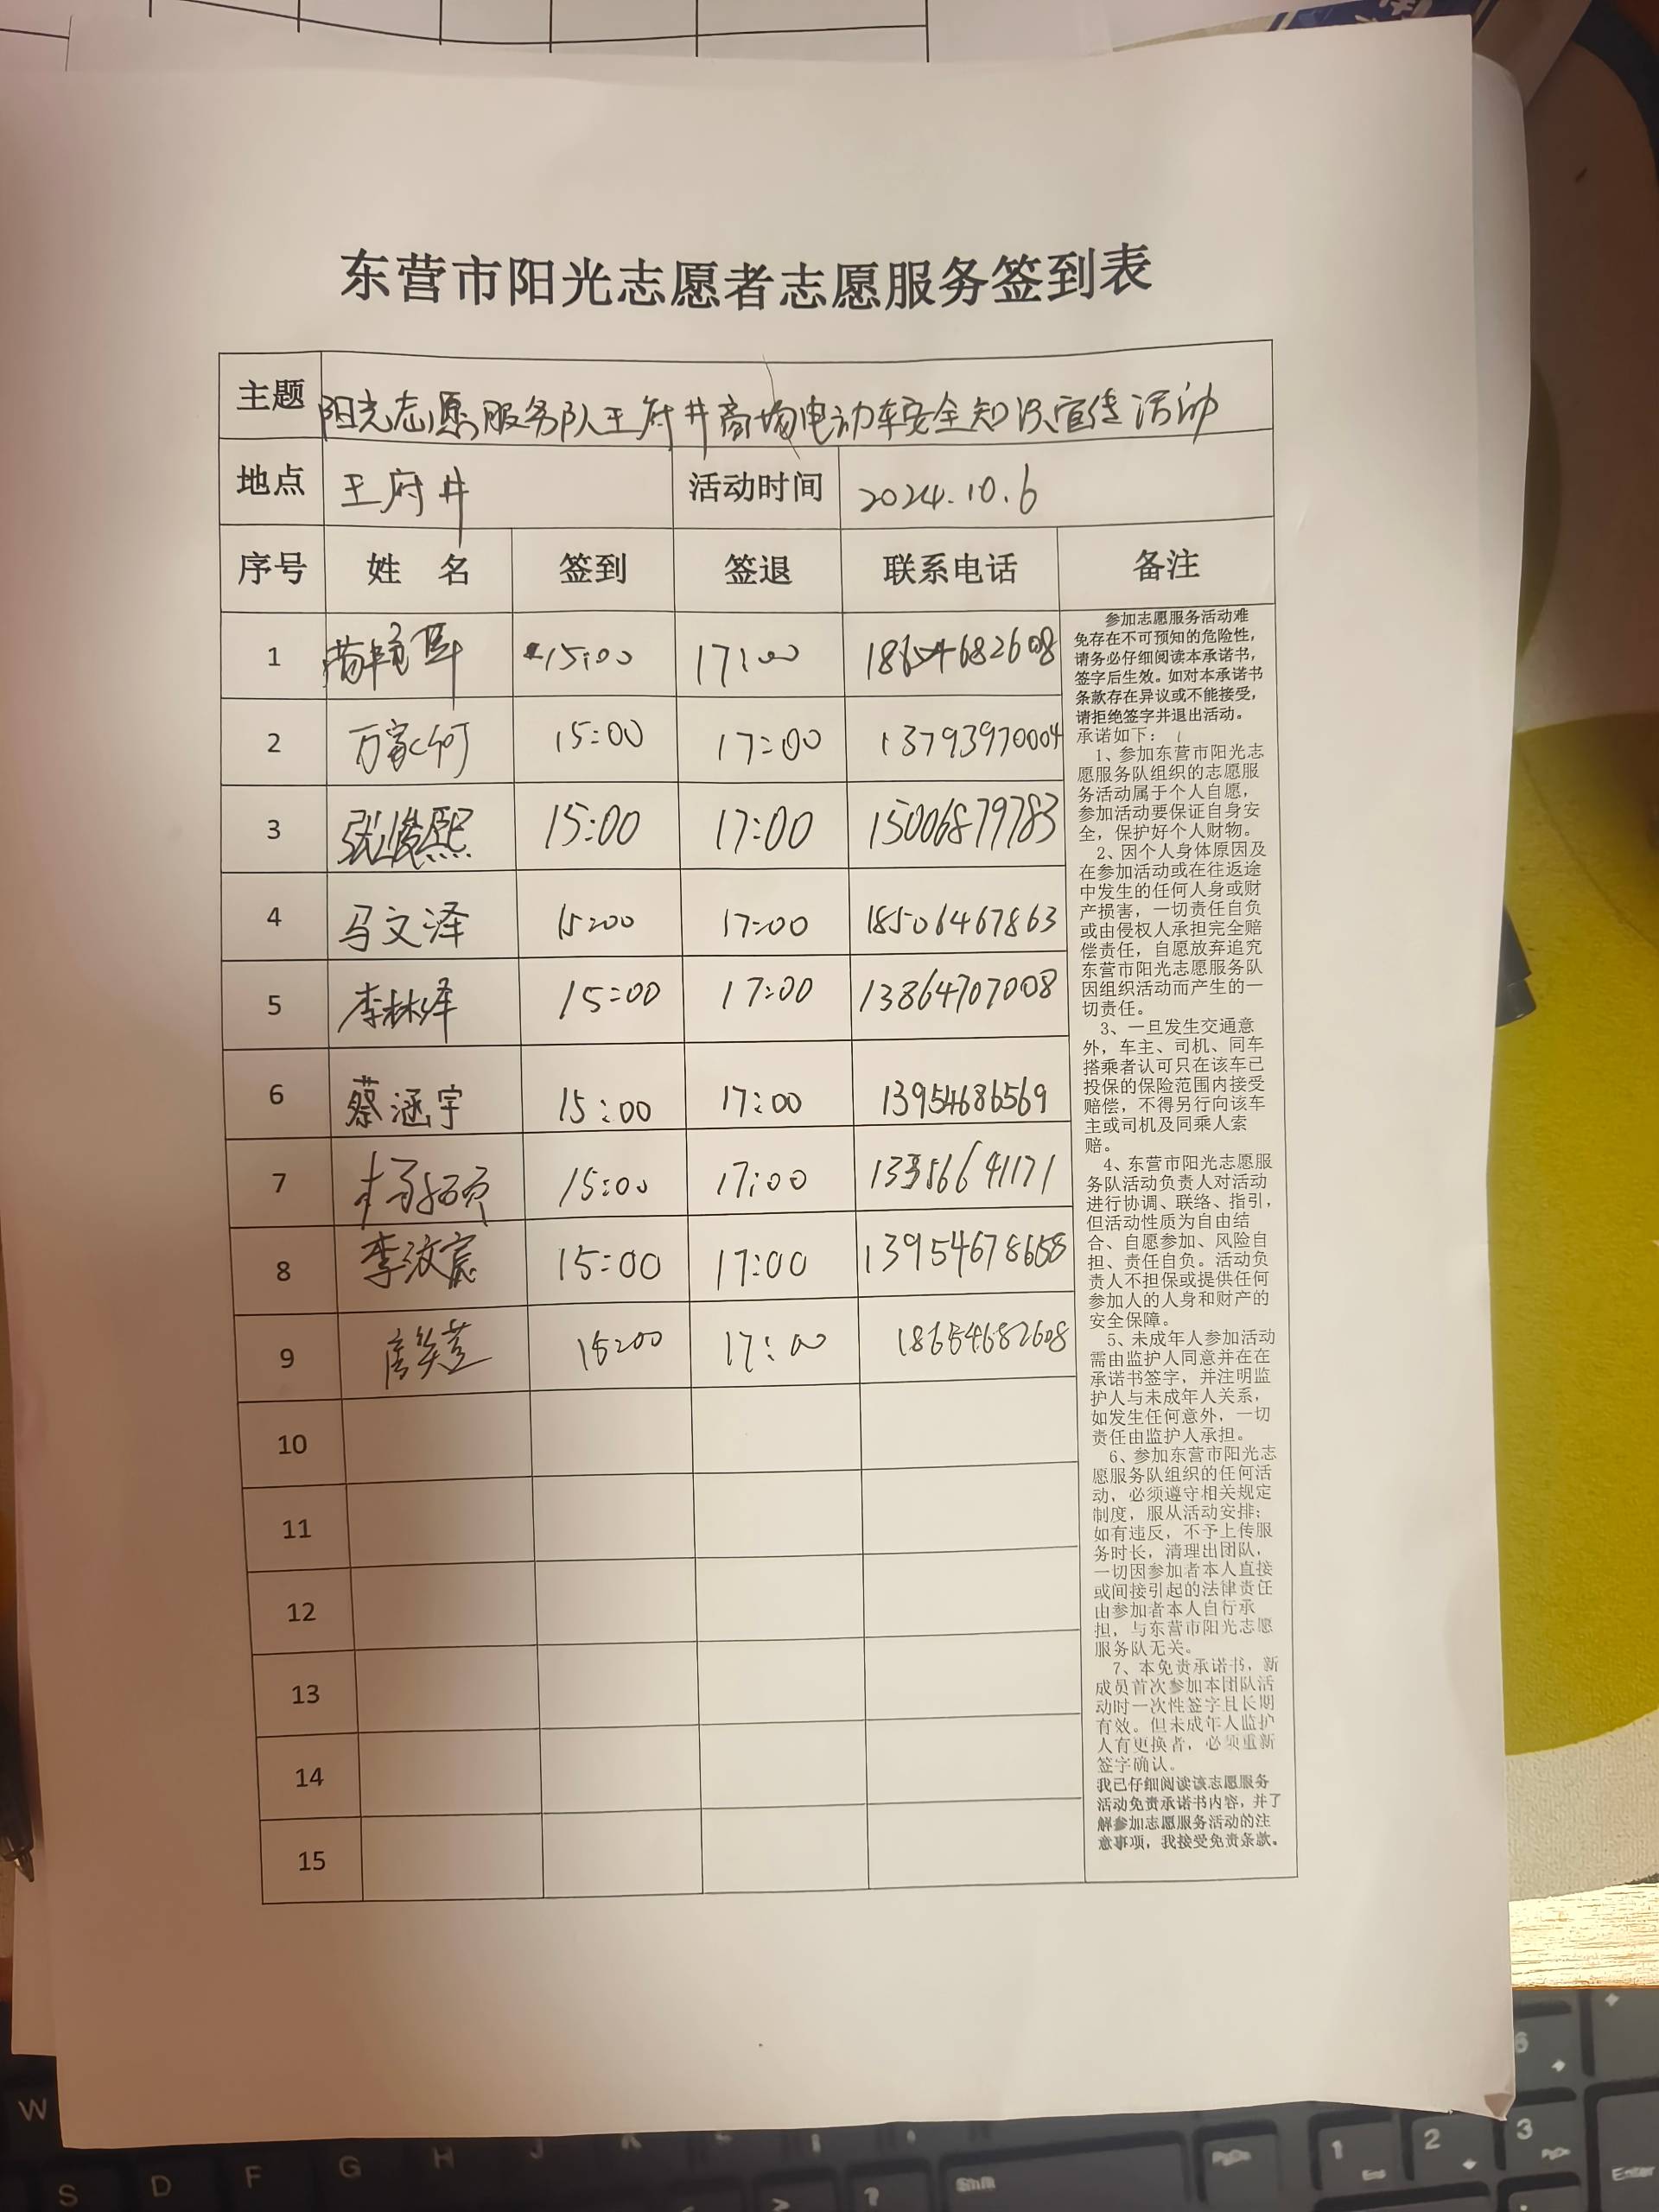 东营市阳光志愿者志愿服务签到表
主题 阳光志愿服务队王府井商场电动车安全知识宣传活动
地点 王府井 活动时间 2024.10.6
序号 姓 名 签到 签退 联系电话 备注
1 15:00 17:00 18654682608
2 万家 15:00 17:00 13793970004
3 张俊熙 15:00 17:00 15006879783
4 马文泽 15:00 17:00 18506467863
5 李林泽 15:00 17:00 13864707008
6 蔡涵宇 15:00 17:00 13954686569
7 杨硕 15:00 17:00
8 李汶宸 15:00 17:00 13954678658
9 15:00 17:00 18654682608
10
11
12
13
14
15
参加志愿服务活动难
免存在不可预知的危险性，
请务必仔细阅读本承诺书，
签字后生效。如对本承诺书
条款存在异议或不能接受，
请拒绝签字并退出活动。
承诺如下：
1、参加东营市阳光志
愿服务队组织的志愿服
务活动属于个人自愿，
参加活动要保证自身安
全，保护好个人财物。
2、因个人身体原因及
在参加活动或在往返途
中发生的任何人身或财
产损害，一切责任自负
或由侵权人承担完全赔
偿责任，自愿放弃追究
东营市阳光志愿服务队
因组织活动而产生的一
切责任。
3、一旦发生交通意
外，车主、司机、同车
搭乘者认可只在该车已
投保的保险范围内接受
赔偿，不得另行向该车
主或司机及同乘人索
赔。
4、东营市阳光志愿服
务队活动负责人对活动
进行协调、联络、指引，
但活动性质为自由结
合、自愿参加、风险自
担、责任自负。活动负
责人不担保或提供任何
参加人的人身和财产的
安全保障。
5、未成年人参加活动
需由监护人同意并在在
承诺书签字，并注明监
护人与未成年人关系，
如发生任何意外，一切
责任由监护人承担。
6、参加东营市阳光志
愿服务队组织的任何活
动，必须遵守相关规定
制度，服从活动安排；
如有违反，不予上传服
务时长，清理出团队，
一切因参加者本人直接
或间接引起的法律责任
由参加者本人自行承
担，与东营市阳光志愿
服务队无关。
7、本免责承诺书，新
成员首次参加本团队活
动时一次性签字且长期
有效。但未成年人监护
人有更换者，必须重新
签字确认。
我已仔细阅读该志愿服务
活动免责承诺书内容，并了
解参加志愿服务活动的注
意事项，我接受免责条款。
W
S D F G H J K L
Shift
PgDn
1 End
2
3 PgDn
6
Enter